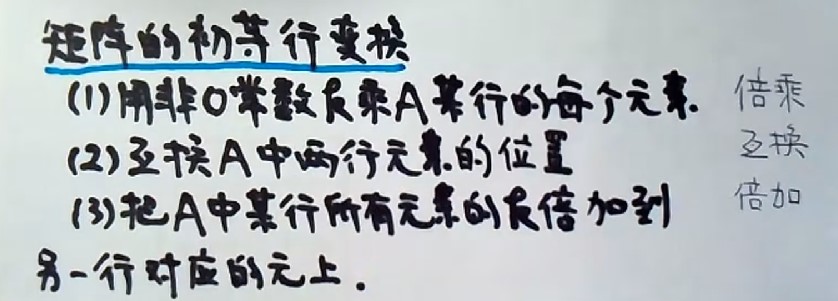 矩阵的初等行变换
(1)用非0常数k乘A某行的每个元素. 倍乘
(2)互换A中两行元素的位置 互换
(3)把A中某行所有元素的k倍加到 倍加
另一行对应的元上.